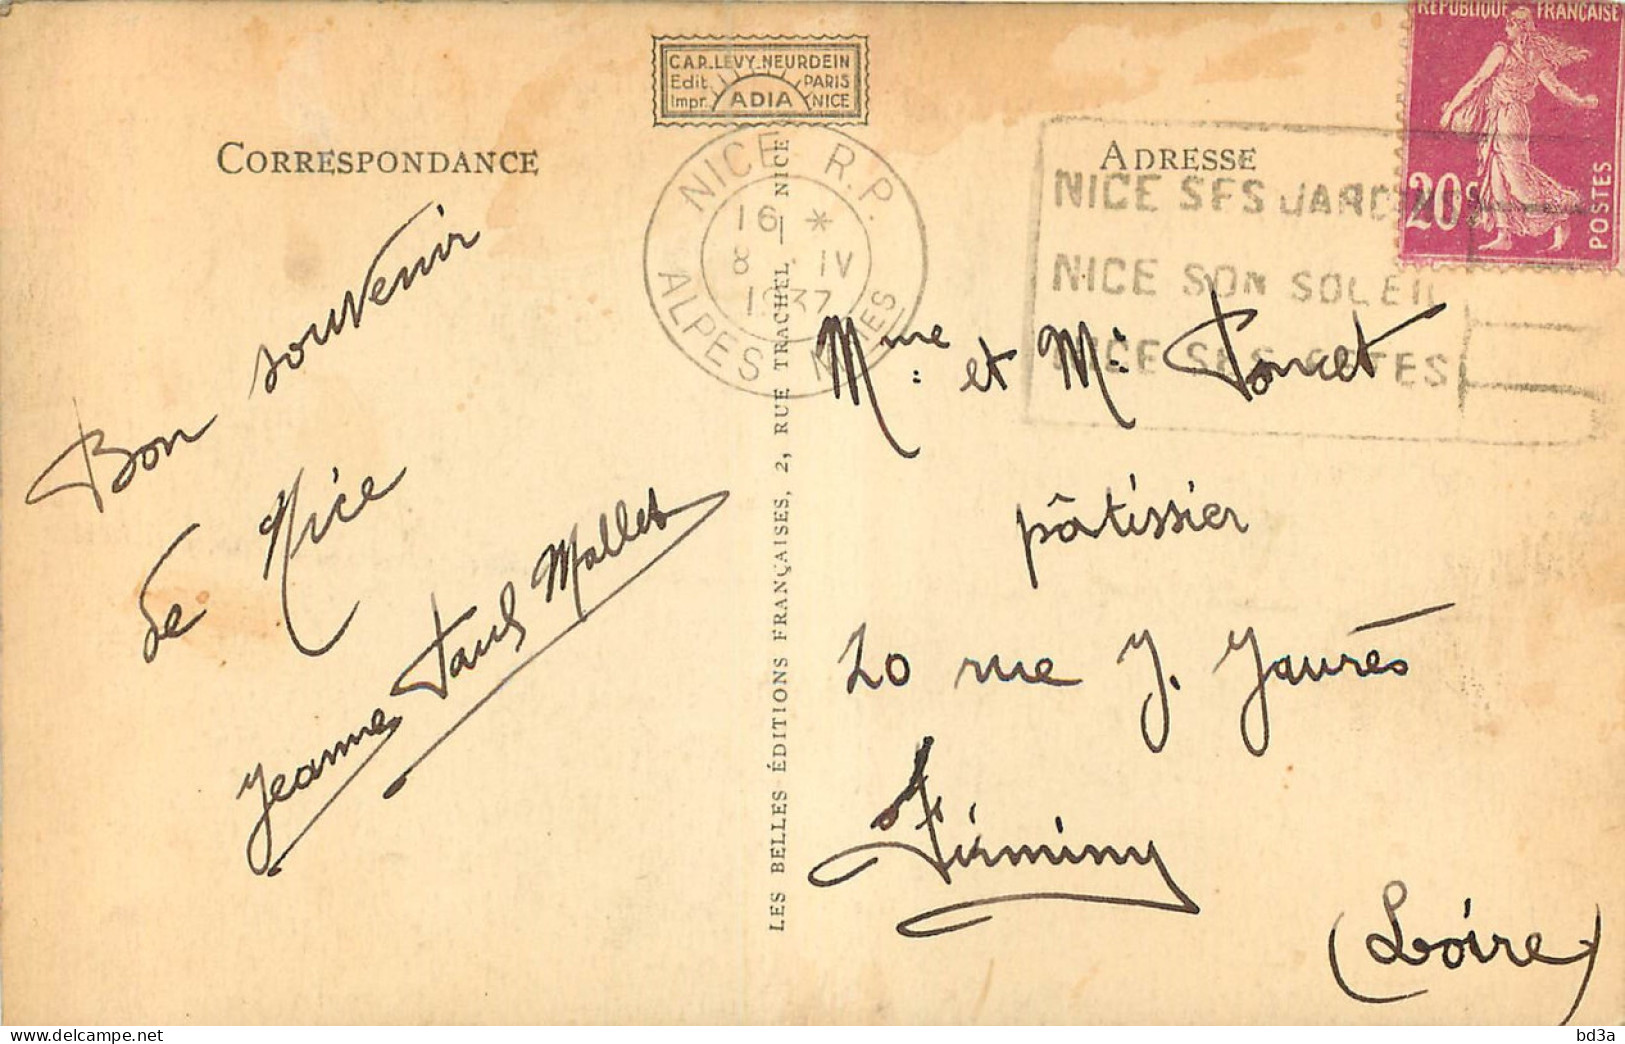 C.A.P. LEVY-NEURDEIN
Edit. PARIS
Impr. ADIA NICE
CORRESPONDANCE
ADRESSE
RÉPUBLIQUE FRANÇAISE
20c
POSTES
NICE R.P.
16 *
8 IV
1937
ALPES MMES
NICE SES JARDINS
NICE SON SOLEIL
NICE SES FETES
Bon souvenir
de Nice
Jeanne Paul Mallet
LES BELLES ÉDITIONS FRANÇAISES, 2, RUE TRACHEL — NICE
Mme et Mr Poncet
pâtissier
20 rue J. Jaurès
Firminy
(Loire)
bd3a